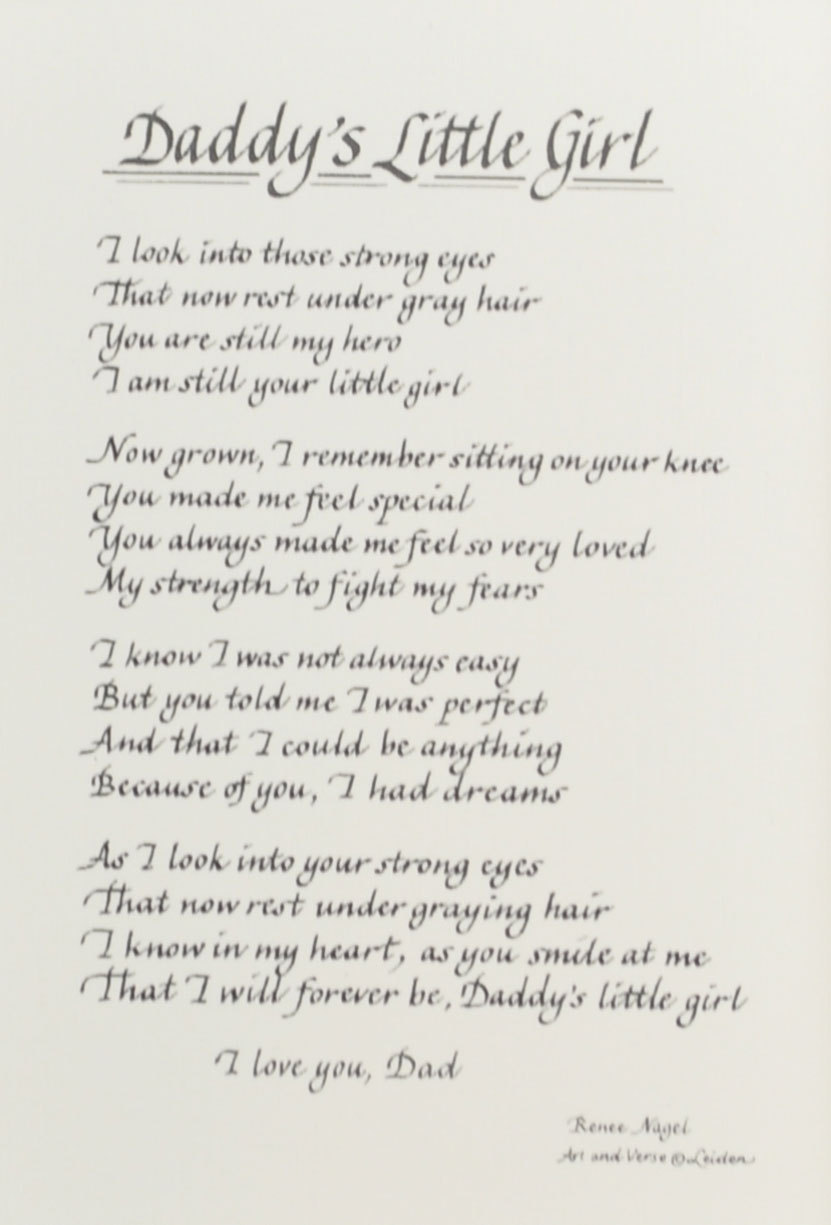 Daddy's Little Girl
I look into those strong eyes
That now rest under gray hair
You are still my hero
I am still your little girl
Now grown, I remember sitting on your knee
You made me feel special
You always made me feel so very loved
My strength to fight my fears
I know I was not always easy
But you told me I was perfect
And that I could be anything
Because of you, I had dreams
As I look into your strong eyes
That now rest under graying hair
I know in my heart, as you smile at me
That I will forever be, Daddy's little girl
I love you, Dad
Renee Nagel
Art and Verse © Leiden